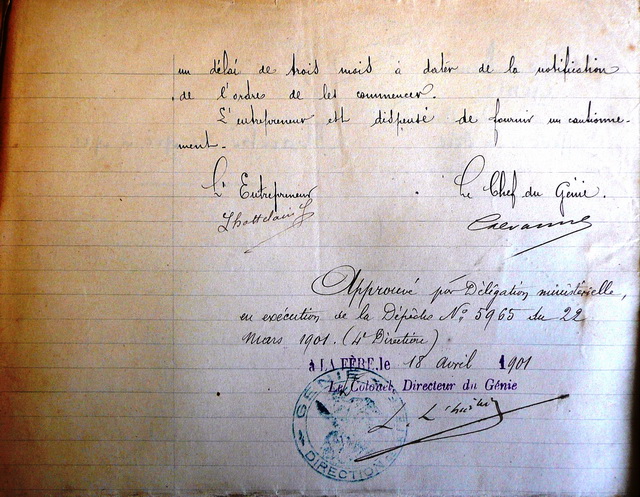 un délai de trois mois à dater de la notification
de l'ordre de les commencer.
L'entrepreneur est dispensé de fournir un cautionne-
ment.
L'Entrepreneur
Le Chef du Génie.
Approuvé par Délégation ministérielle,
en exécution de la Dépêche Nº 5965 du 22
mars 1901. (4e Direction)
à LA FÈRE, le 18 avril 1901
Le Colonel, Directeur du Génie
GÉNIE
DIRECTION